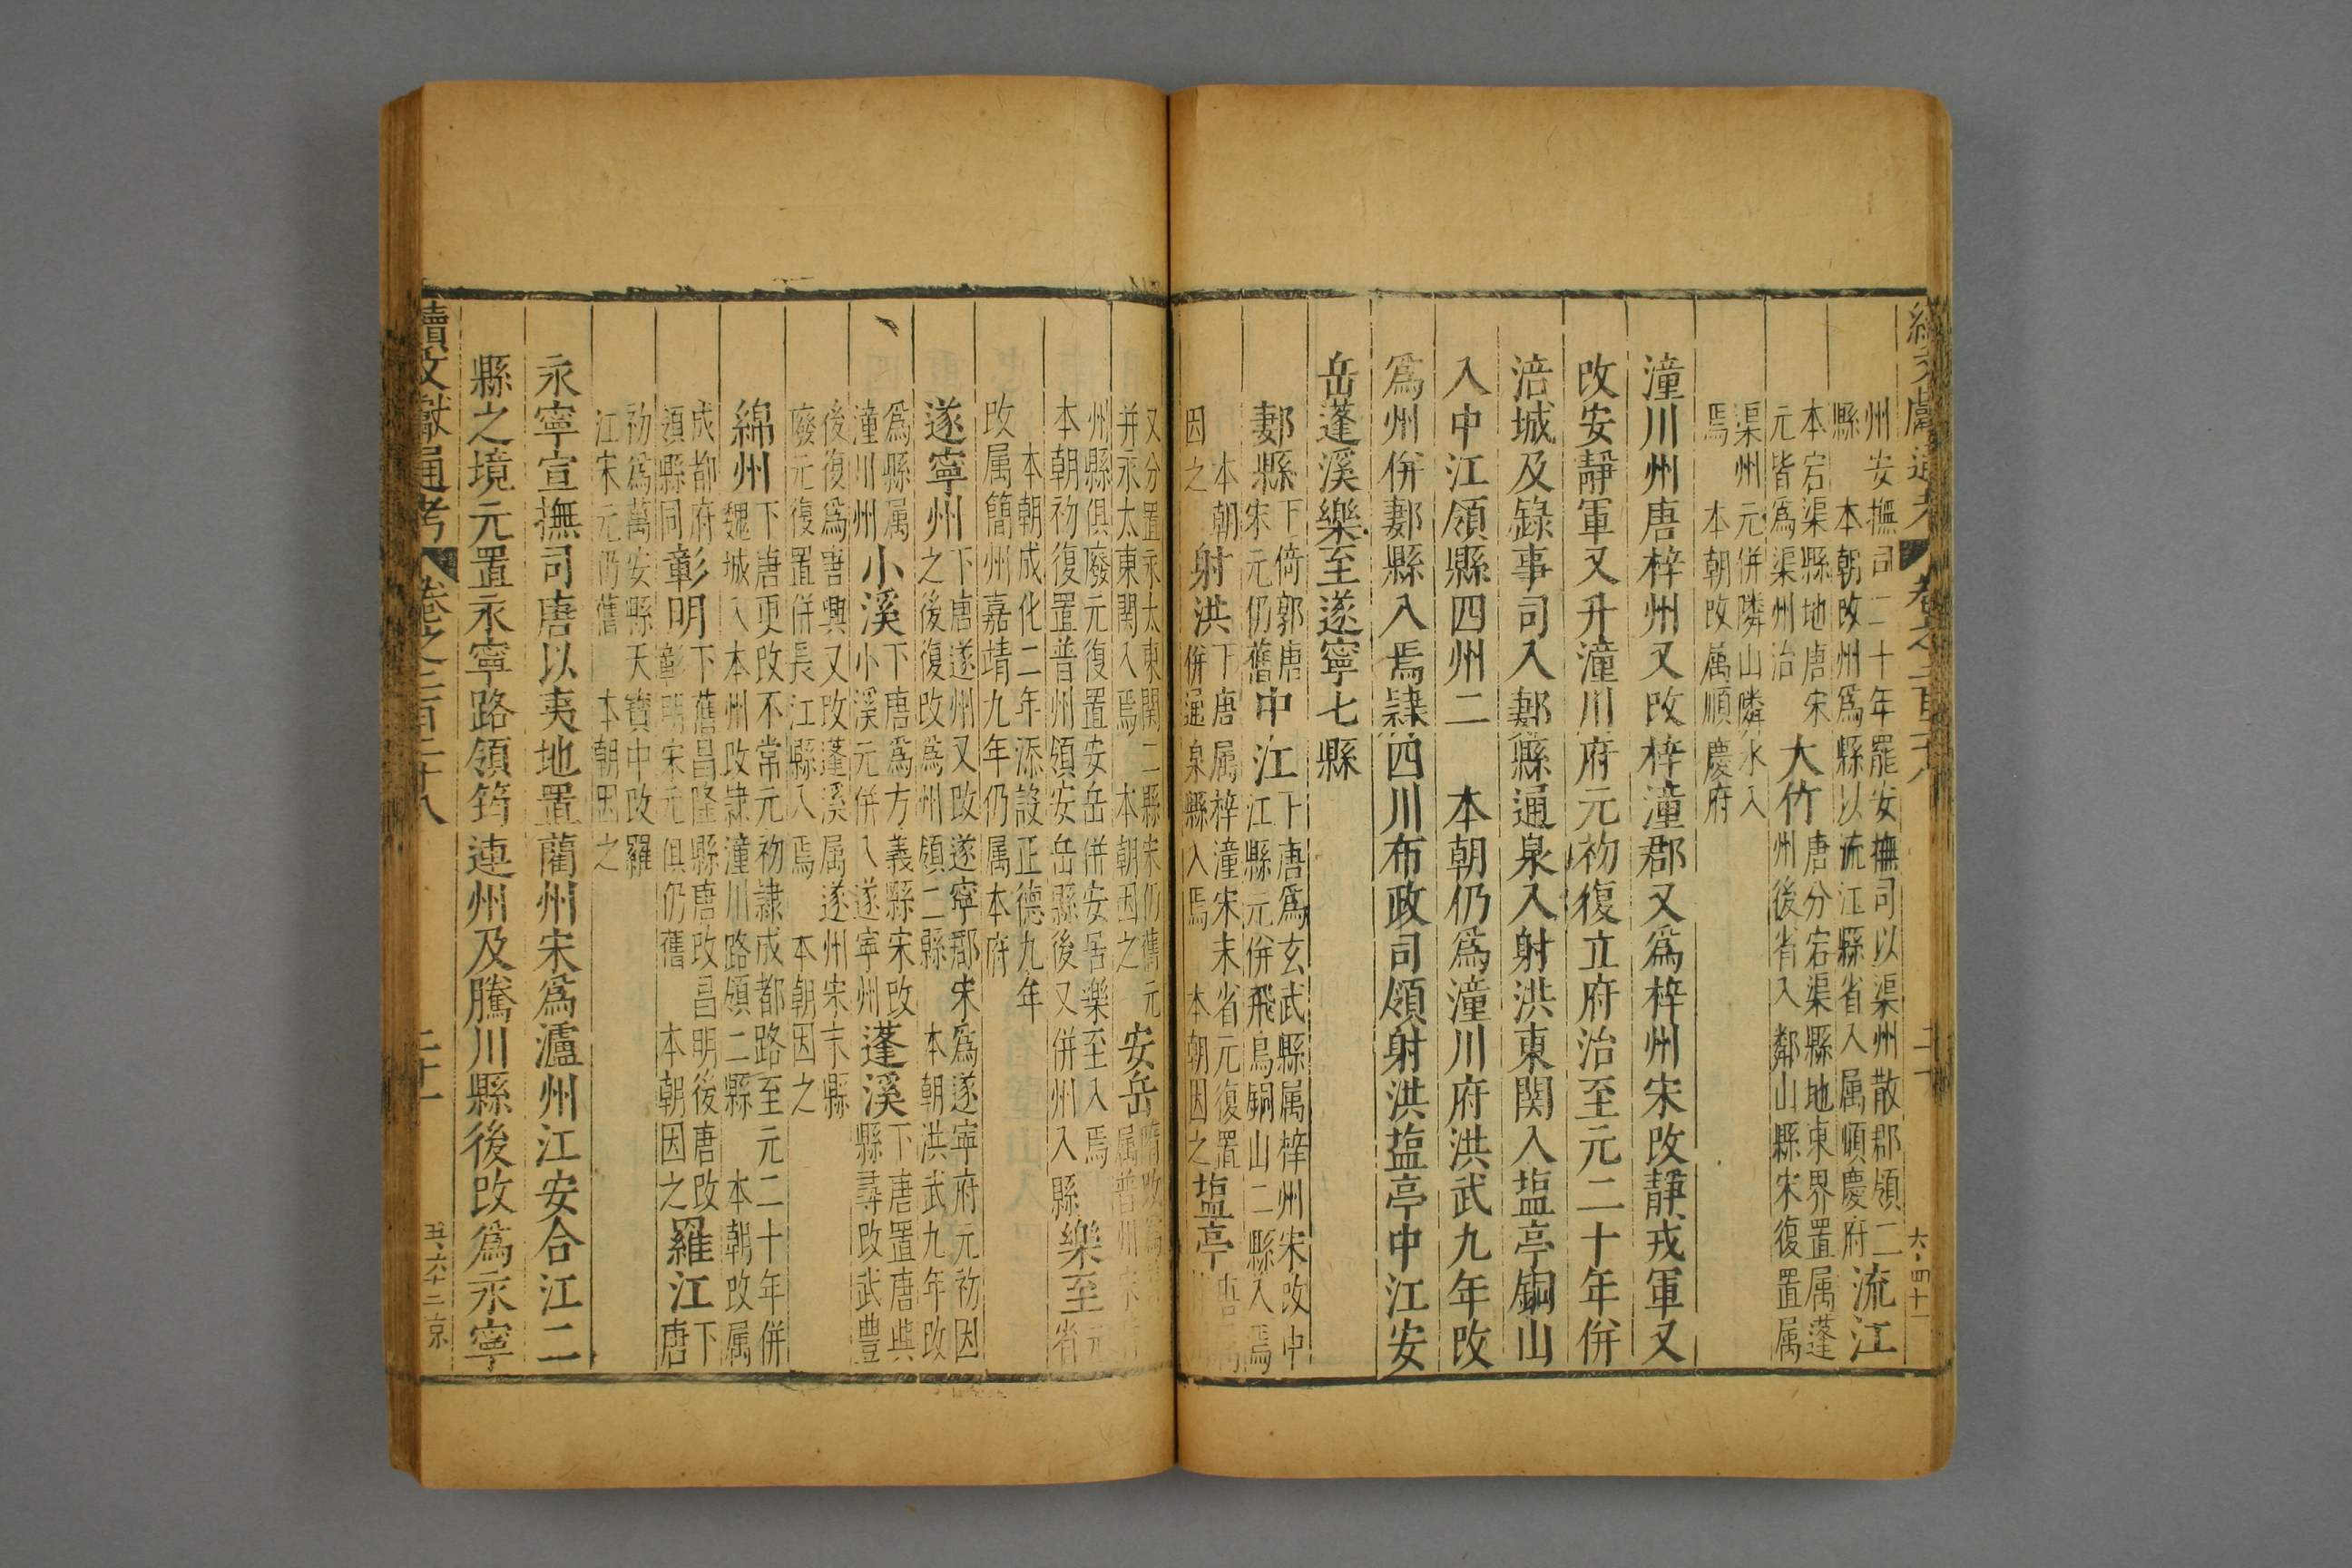 州安撫司二十年罷安撫司以渠州散郡領二
縣 本朝改州爲縣以流江縣省入属順慶府
流江
本宕渠縣地唐宋
元皆爲渠州治
大竹
唐分宕渠縣地東界置属蓬
州後省入鄰山縣宋復置属
渠州元併隣山隣水入
焉 本朝改属順慶府
潼川州唐梓州又改梓潼郡又爲梓州宋改靜戎軍又
改安靜軍又升潼川府元初復立府治至元二十年併
涪城及錄事司入郪縣通泉入射洪東関入塩亭銅山
入中江領縣四州二 本朝仍爲潼川府洪武九年改
爲州併郪縣入焉隷四川布政司領射洪塩亭中江安
岳蓬溪樂至遂寧七縣
郪縣
下倚郭唐
宋元仍舊
中江
下唐爲玄武縣属梓州宋改中
江縣元併飛烏銅山二縣入焉
本朝
因之
射洪
下唐属梓潼宋末省元復置
併通泉縣入焉 本朝因之
塩亭
又分置永太東関二縣宋仍舊元
并永太東関入焉 本朝因之
安岳
属普州
州縣俱廢元復置安岳併安居樂至入焉
本朝初復置普州領安岳縣後又併州入縣
樂至
本朝成化二年添設正德九年
改属簡州嘉靖九年仍属本府
遂寧州
下唐遂州又改遂寧郡宋爲遂寧府元初因
之後復改爲州領二縣 本朝洪武九年改
爲縣属
潼川州
小溪
下唐爲方義縣宋改
小溪元併入遂寧州
蓬溪
下唐置唐興
縣尋改武豊
後復爲唐興又改蓬溪属遂州宋末縣
廢元復置併長江縣入焉 本朝因之
綿州
下唐更改不常元初隷成都路至元二十年併
魏城入本州改隷潼川路領二縣 本朝改属
成都府
領縣同
彰明
下舊昌隆縣唐改昌明後唐改
彰明宋元俱仍舊 本朝因之
羅江
下
唐
初爲萬安縣天寶中改羅
江宋元仍舊 本朝因之
永寧宣撫司唐以夷地置藺州宋爲瀘州江安合江二
縣之境元置永寧路領筠連州及騰川縣後改爲永寧
續文獻通考 卷之二百二十八 二十一